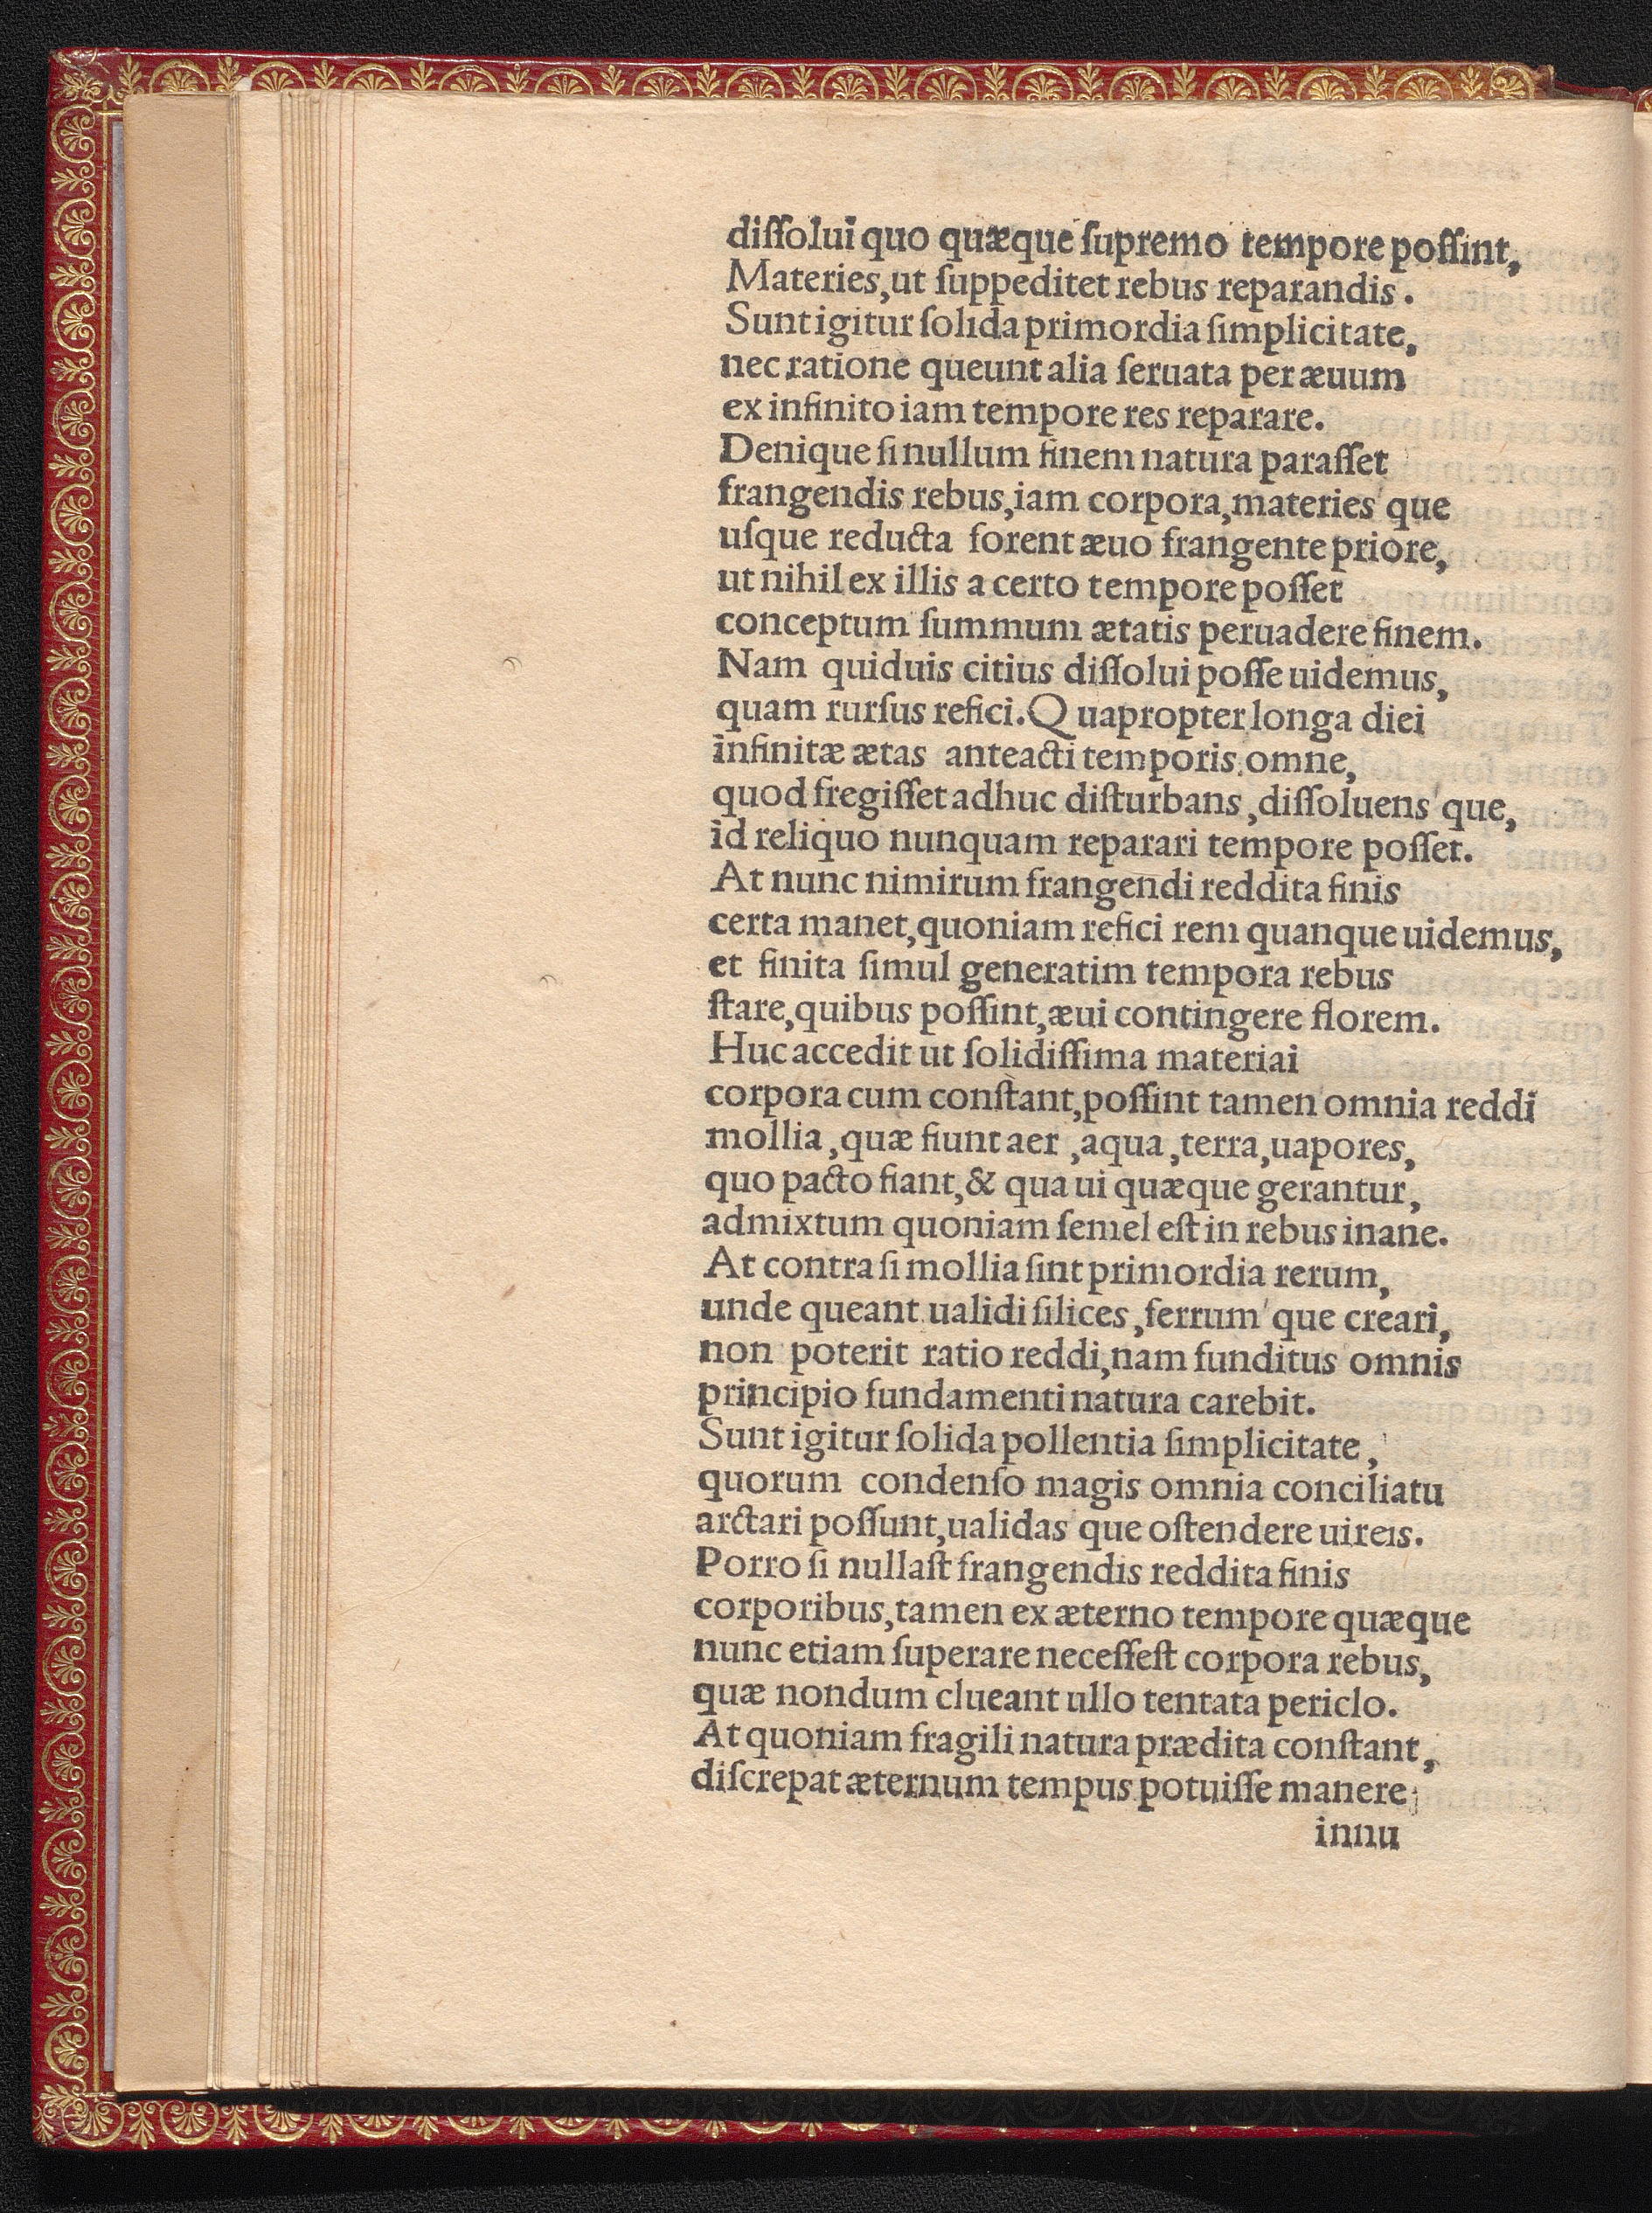 diſſolui quo quæque ſupremo tempore poſſint,
Materies,ut ſuppeditet rebus reparandis.
Sunt igitur ſolida primordia ſimplicitate,
nec ratione queunt alia ſeruata per æuum
ex infinito iam tempore res reparare.
Denique ſi nullum finem natura paraſſet
frangendis rebus,iam corpora,materies que
uſque reducta forent æuo frangente priore,
ut nihil ex illis a certo tempore poſſet
conceptum ſummum ætatis peruadere finem.
Nam quiduis citius diſſolui poſſe uidemus,
quam rurſus refici.Quapropter longa diei
infinitæ ætas anteacti temporis omne,
quod fregiſſet adhuc diſturbans,diſſoluens que,
id reliquo nunquam reparari tempore poſſet.
At nunc nimirum frangendi reddita finis
certa manet,quoniam refici rem quanque uidemus,
et finita ſimul generatim tempora rebus
ſtare,quibus poſſint,æui contingere florem.
Huc accedit ut ſolidiſſima materiai
corpora cum conſtant,poſſint tamen omnia reddi
mollia,quæ fiunt aer,aqua,terra,uapores,
quo pacto fiant,& qua ui quæque gerantur,
admixtum quoniam ſemel eſt in rebus inane.
At contra ſi mollia ſint primordia rerum,
unde queant ualidi ſilices,ferrum que creari,
non poterit ratio reddi,nam funditus omnis
principio fundamenti natura carebit.
Sunt igitur ſolida pollentia ſimplicitate,
quorum condenſo magis omnia conciliatu
arctari poſſunt,ualidas que oſtendere uireis.
Porro ſi nullaſt frangendis reddita finis
corporibus,tamen ex æterno tempore quæque
nunc etiam ſuperare neceſſeſt corpora rebus,
quæ nondum clueant ullo tentata periclo.
At quoniam fragili natura prædita conſtant,
diſcrepat æternum tempus potuiſſe manere
innu